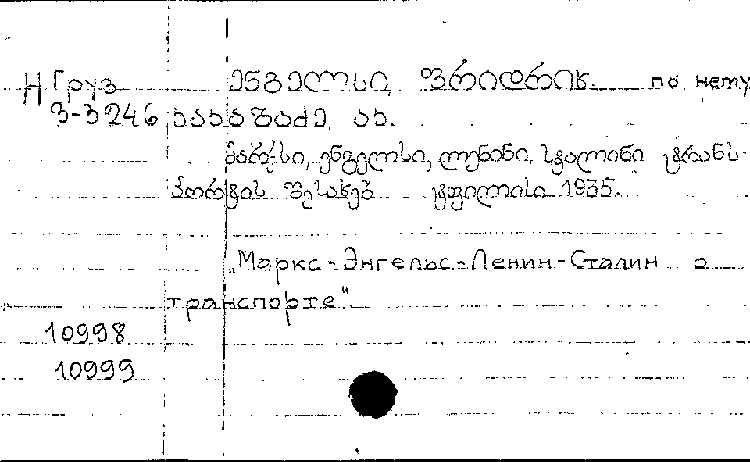 Н Груз ენგელსი, ფრიდრიხ. по нему
3-3246 ვახაზაძე, ან.
მარქსი, ენგელსი, ლენინი, სტალინი ტრანს-
პორტის შესახებ ტფილისი 1935.
„Маркс-Энгельс-Ленин-Сталин о
транспорте"
10998
10999